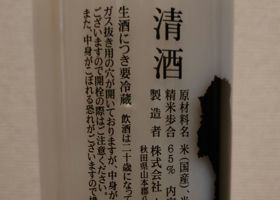 清酒
原材料名 米(国産)、米
精米歩合 65% 内容
製造者 株式会社
秋田県山本郡八
生酒につき要冷蔵 飲酒は二十歳になって
ガス抜き用の穴が開いておりますが、中身が
ございますので開栓の際はご注意ください。
また、中身がこぼれる恐れがございますので横